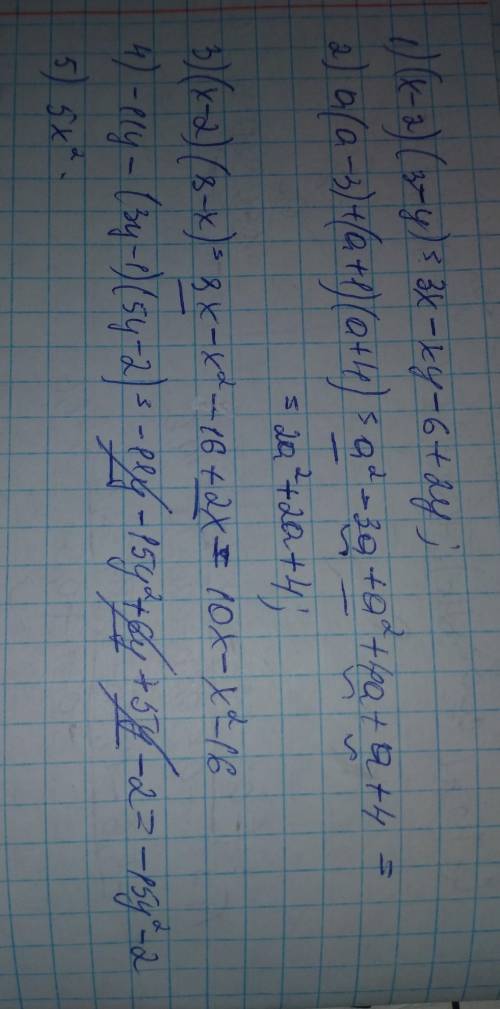 1) (x-2)(3-y) = 3x - xy - 6 + 2y;
2) a(a-3)+(a+1)(a+4) = a² - 3a + a² + 4a + a + 4 =
= 2a² + 2a + 4;
3) (x-2)(8-x) = 8x - x² - 16 + 2x = 10x - x² - 16
4) -11y - (3y-1)(5y-2) = -11y - 15y² + 6y + 5y - 2 = -15y² - 2
5) 5x².